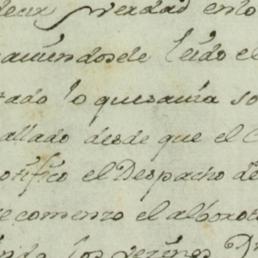 decir verdad en lo
haviendosele leido el
tado lo que savia so
allado desde que el C
otifico el Despacho de
e comenzo el alboro
los vezinos D